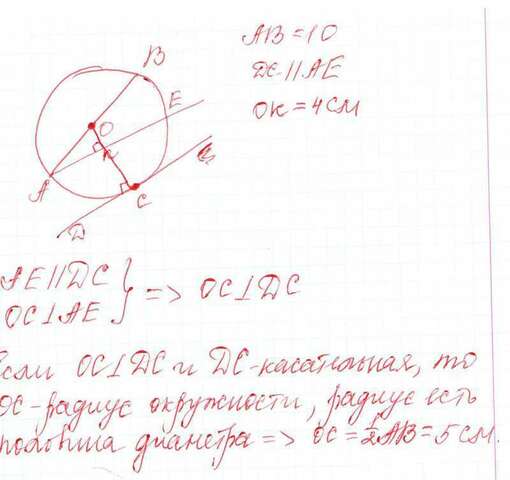 AB=10
DC||AE
OK=4СМ
B
E
O
K
A
C
D
AE||DC
OC⊥AE } => OC⊥DC
Если OC⊥DC и DC-касательная, то
OC-радиус окружности, радиус есть
половина диаметра => OC=1/2AB=5СМ.